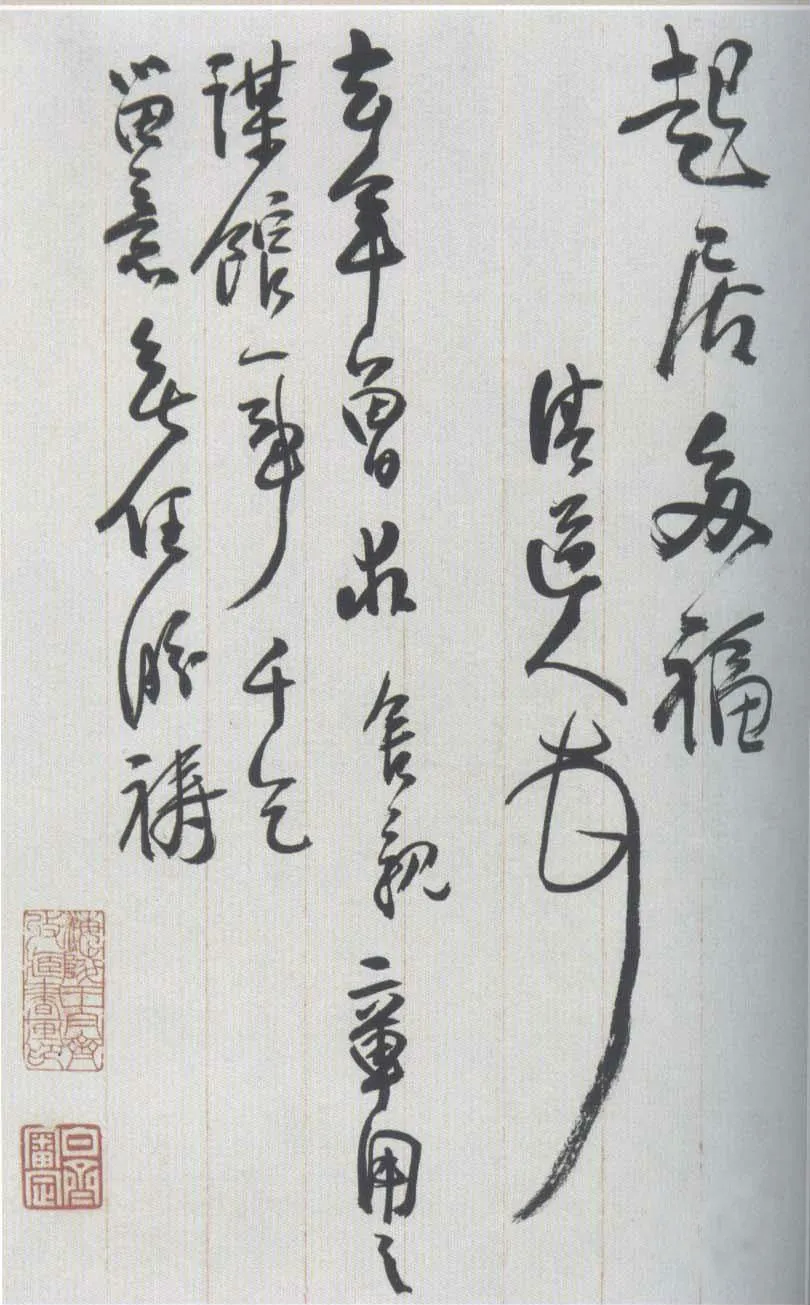 起居多福
清道人
去年曾求 舍親 章用之
謀館一事 千乞
留意 無任盼禱